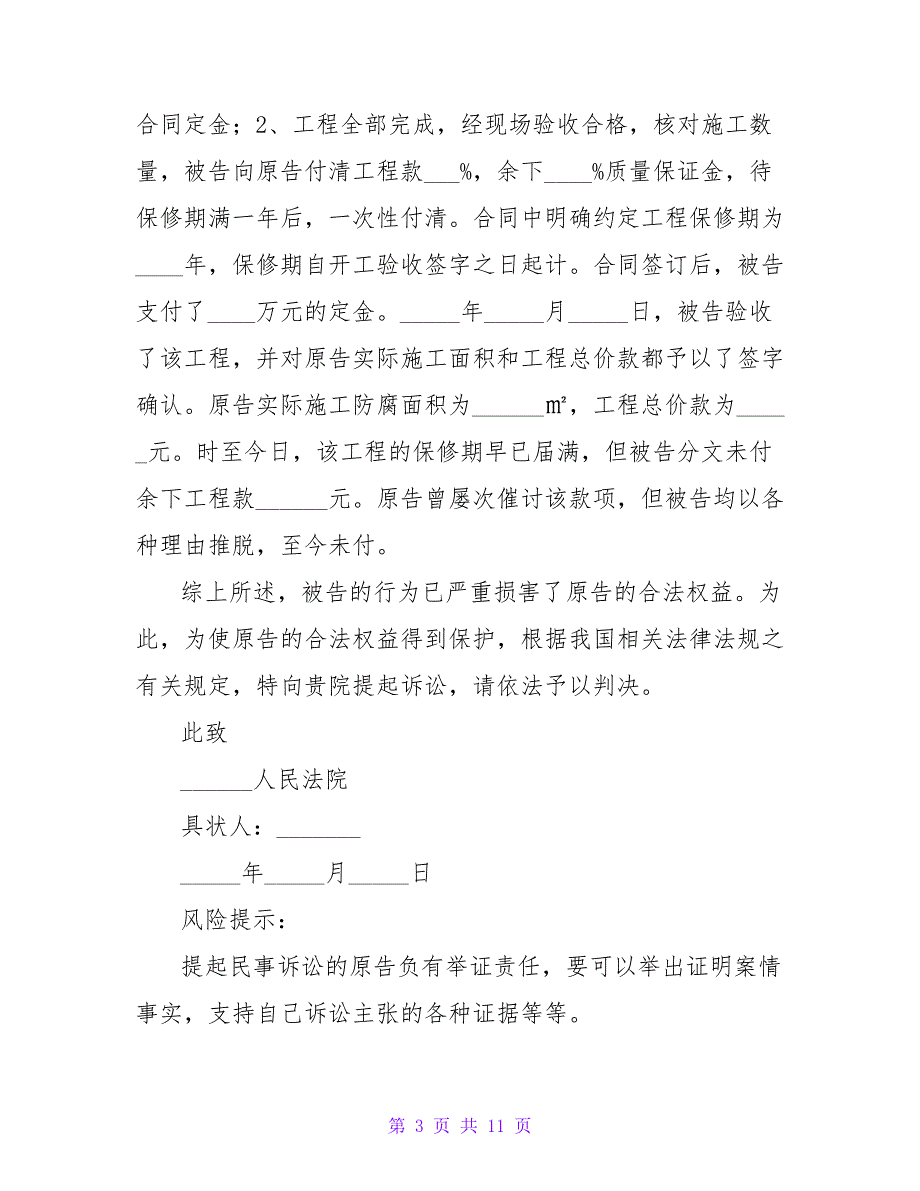 合同定金；2、工程全部完成，经现场验收合格，核对施工数
量，被告向原告付清工程款___%，余下____%质量保证金，待
保修期满一年后，一次性付清。合同中明确约定工程保修期为
____年，保修期自开工验收签字之日起计。合同签订后，被告
支付了____万元的定金。_____年_____月_____日，被告验收
了该工程，并对原告实际施工面积和工程总价款都予以了签字
确认。原告实际施工防腐面积为______㎡，工程总价款为____
_元。时至今日，该工程的保修期早已届满，但被告分文未付
余下工程款______元。原告曾屡次催讨该款项，但被告均以各
种理由推脱，至今未付。
综上所述，被告的行为已严重损害了原告的合法权益。为
此，为使原告的合法权益得到保护，根据我国相关法律法规之
有关规定，特向贵院提起诉讼，请依法予以判决。
此致
______人民法院
具状人：_______
_____年_____月_____日
风险提示：
提起民事诉讼的原告负有举证责任，要可以举出证明案情
事实，支持自己诉讼主张的各种证据等等。
第 3 页 共 11 页